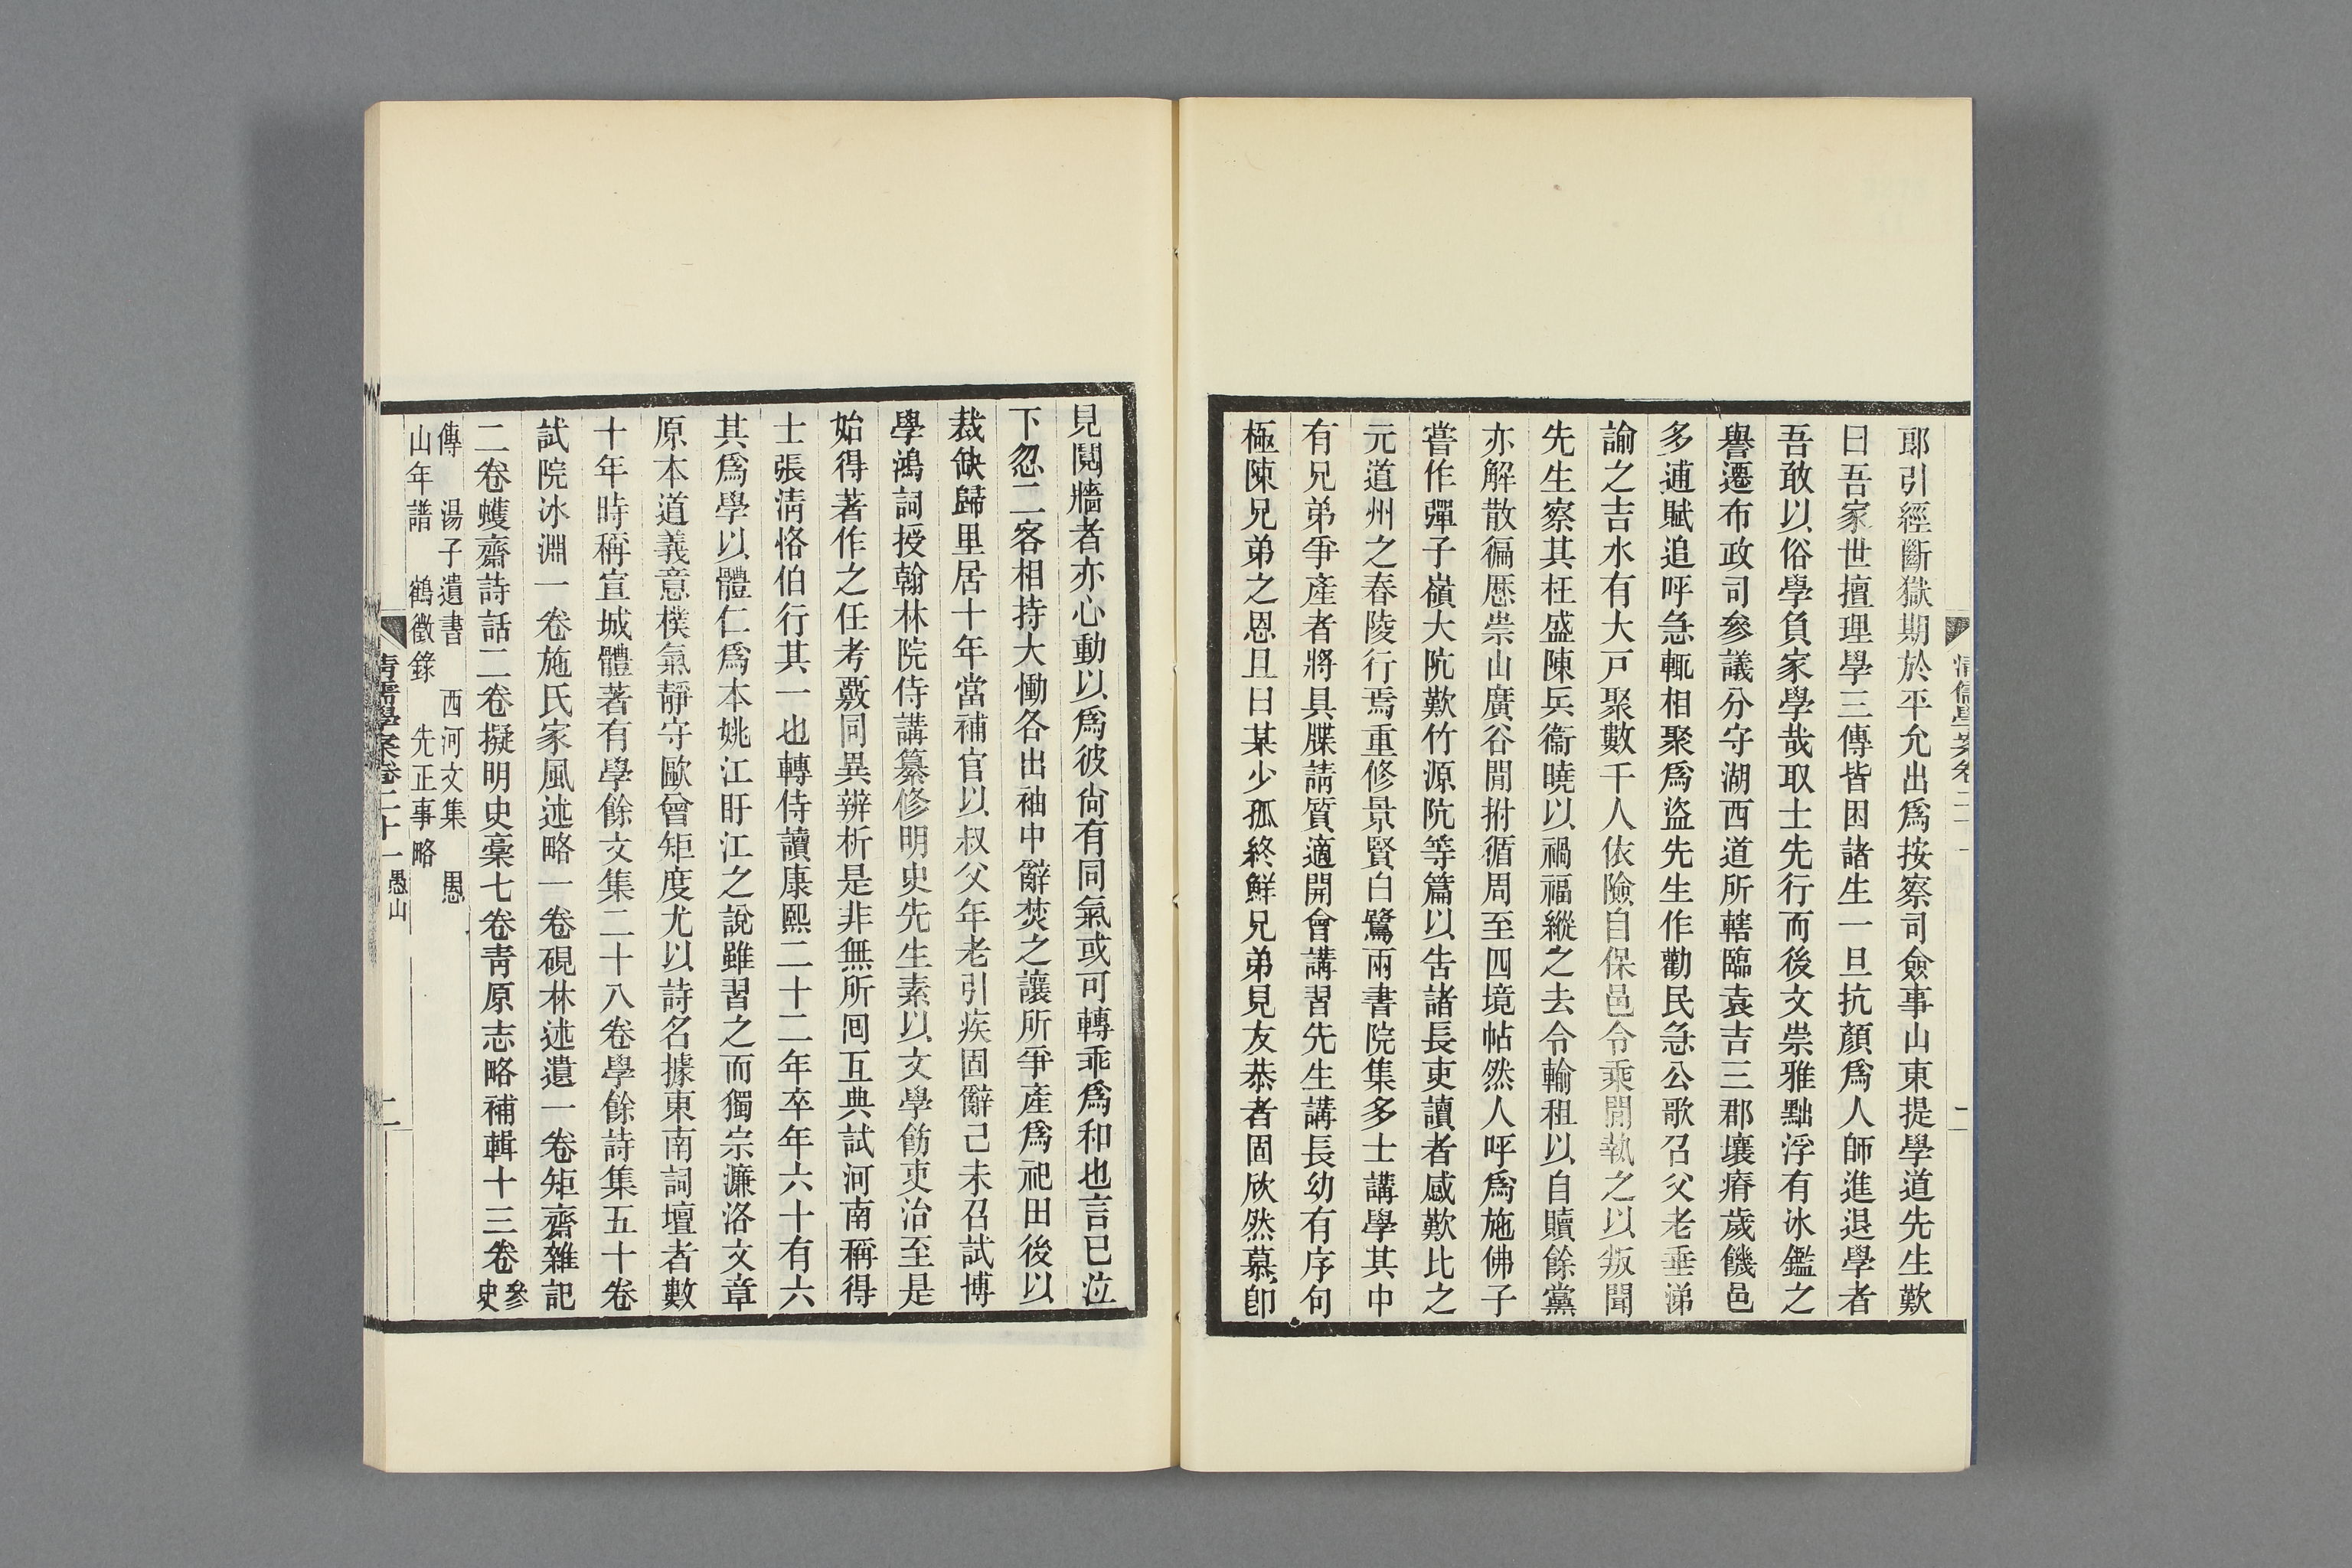 清儒學案卷二十一
二
郎引經斷獄期於平允出爲按察司僉事山東提學道先生歎
曰吾家世擅理學三傳皆困諸生一旦抗顏爲人師進退學者
吾敢以俗學負家學哉取士先行而後文崇雅黜浮有冰鑑之
譽遷布政司參議分守湖西道所轄臨袁吉三郡壤瘠歲饑邑
多逋賦追呼急輒相聚爲盜先生作勸民急公歌召父老垂涕
諭之吉水有大戸聚數千人依險自保邑令乘閒執之以叛聞
先生察其枉盛陳兵衞曉以禍福縱之去令輸租以自贖餘黨
亦解散徧歷崇山廣谷閒拊循周至四境帖然人呼爲施佛子
嘗作彈子嶺大阬歎竹源阬等篇以告諸長吏讀者感歎比之
元道州之舂陵行焉重修景賢白鷺兩書院集多士講學其中
有兄弟爭產者將具牒請質適開會講習先生講長幼有序句
極陳兄弟之恩且曰某少孤終鮮兄弟見友恭者固欣然慕卽
見鬩牆者亦心動以爲彼尙有同氣或可轉乖爲和也言已泣
下忽二客相持大慟各出袖中辭焚之讓所爭產爲祀田後以
裁缺歸里居十年當補官以叔父年老引疾固辭己未召試博
學鴻詞授翰林院侍講纂修明史先生素以文學飭吏治至是
始得著作之任考覈同異辨析是非無所囘互典試河南稱得
士張淸恪伯行其一也轉侍讀康熙二十二年卒年六十有六
其爲學以體仁爲本姚江盱江之說雖習之而獨宗濂洛文章
原本道義意樸氣靜守歐曾矩度尤以詩名據東南詞壇者數
十年時稱宣城體著有學餘文集二十八卷學餘詩集五十卷
試院冰淵一卷施氏家風述略一卷硯林述遺一卷矩齋雜記
二卷蠖齋詩話二卷擬明史稾七卷靑原志略補輯十三卷參史
傳　湯子遺書　西河文集　愚
山年譜　鶴徵錄　先正事略
清儒學案卷二十一愚山
二